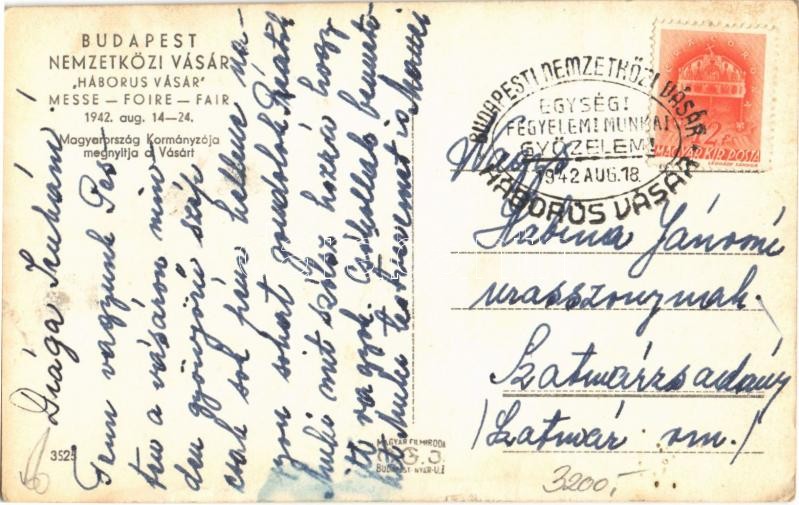 BUDAPEST
NEMZETKÖZI VÁSÁR
„HÁBORUS VÁSÁR"
MESSE — FOIRE — FAIR
1942. aug. 14—24.
Magyarország Kormányzója
megnyitja a Vásárt
Drága
Fenn vagyunk Pes-
ten a vásáron min
den gyönyörü szép
csak sok pénz kellene na-
gyon sokat gondolok
mit szólsz hozzá hogy
itt vagyok. Csókollak benneteket
is
3525
MAGYAR FILMIRODA
BUDAPEST
BUDAPESTI NEMZETKÖZI VÁSÁR
EGYSÉG!
FEGYELEM! MUNKA!
GYŐZELEM!
1942 AUG. 18.
HÁBORÚS VÁSÁR
MAGYAR KIR. POSTA
Nagys
Habina Jánosné
urasszonynak.
Szatmárzsadány
/Szatmár vm./
3200,-